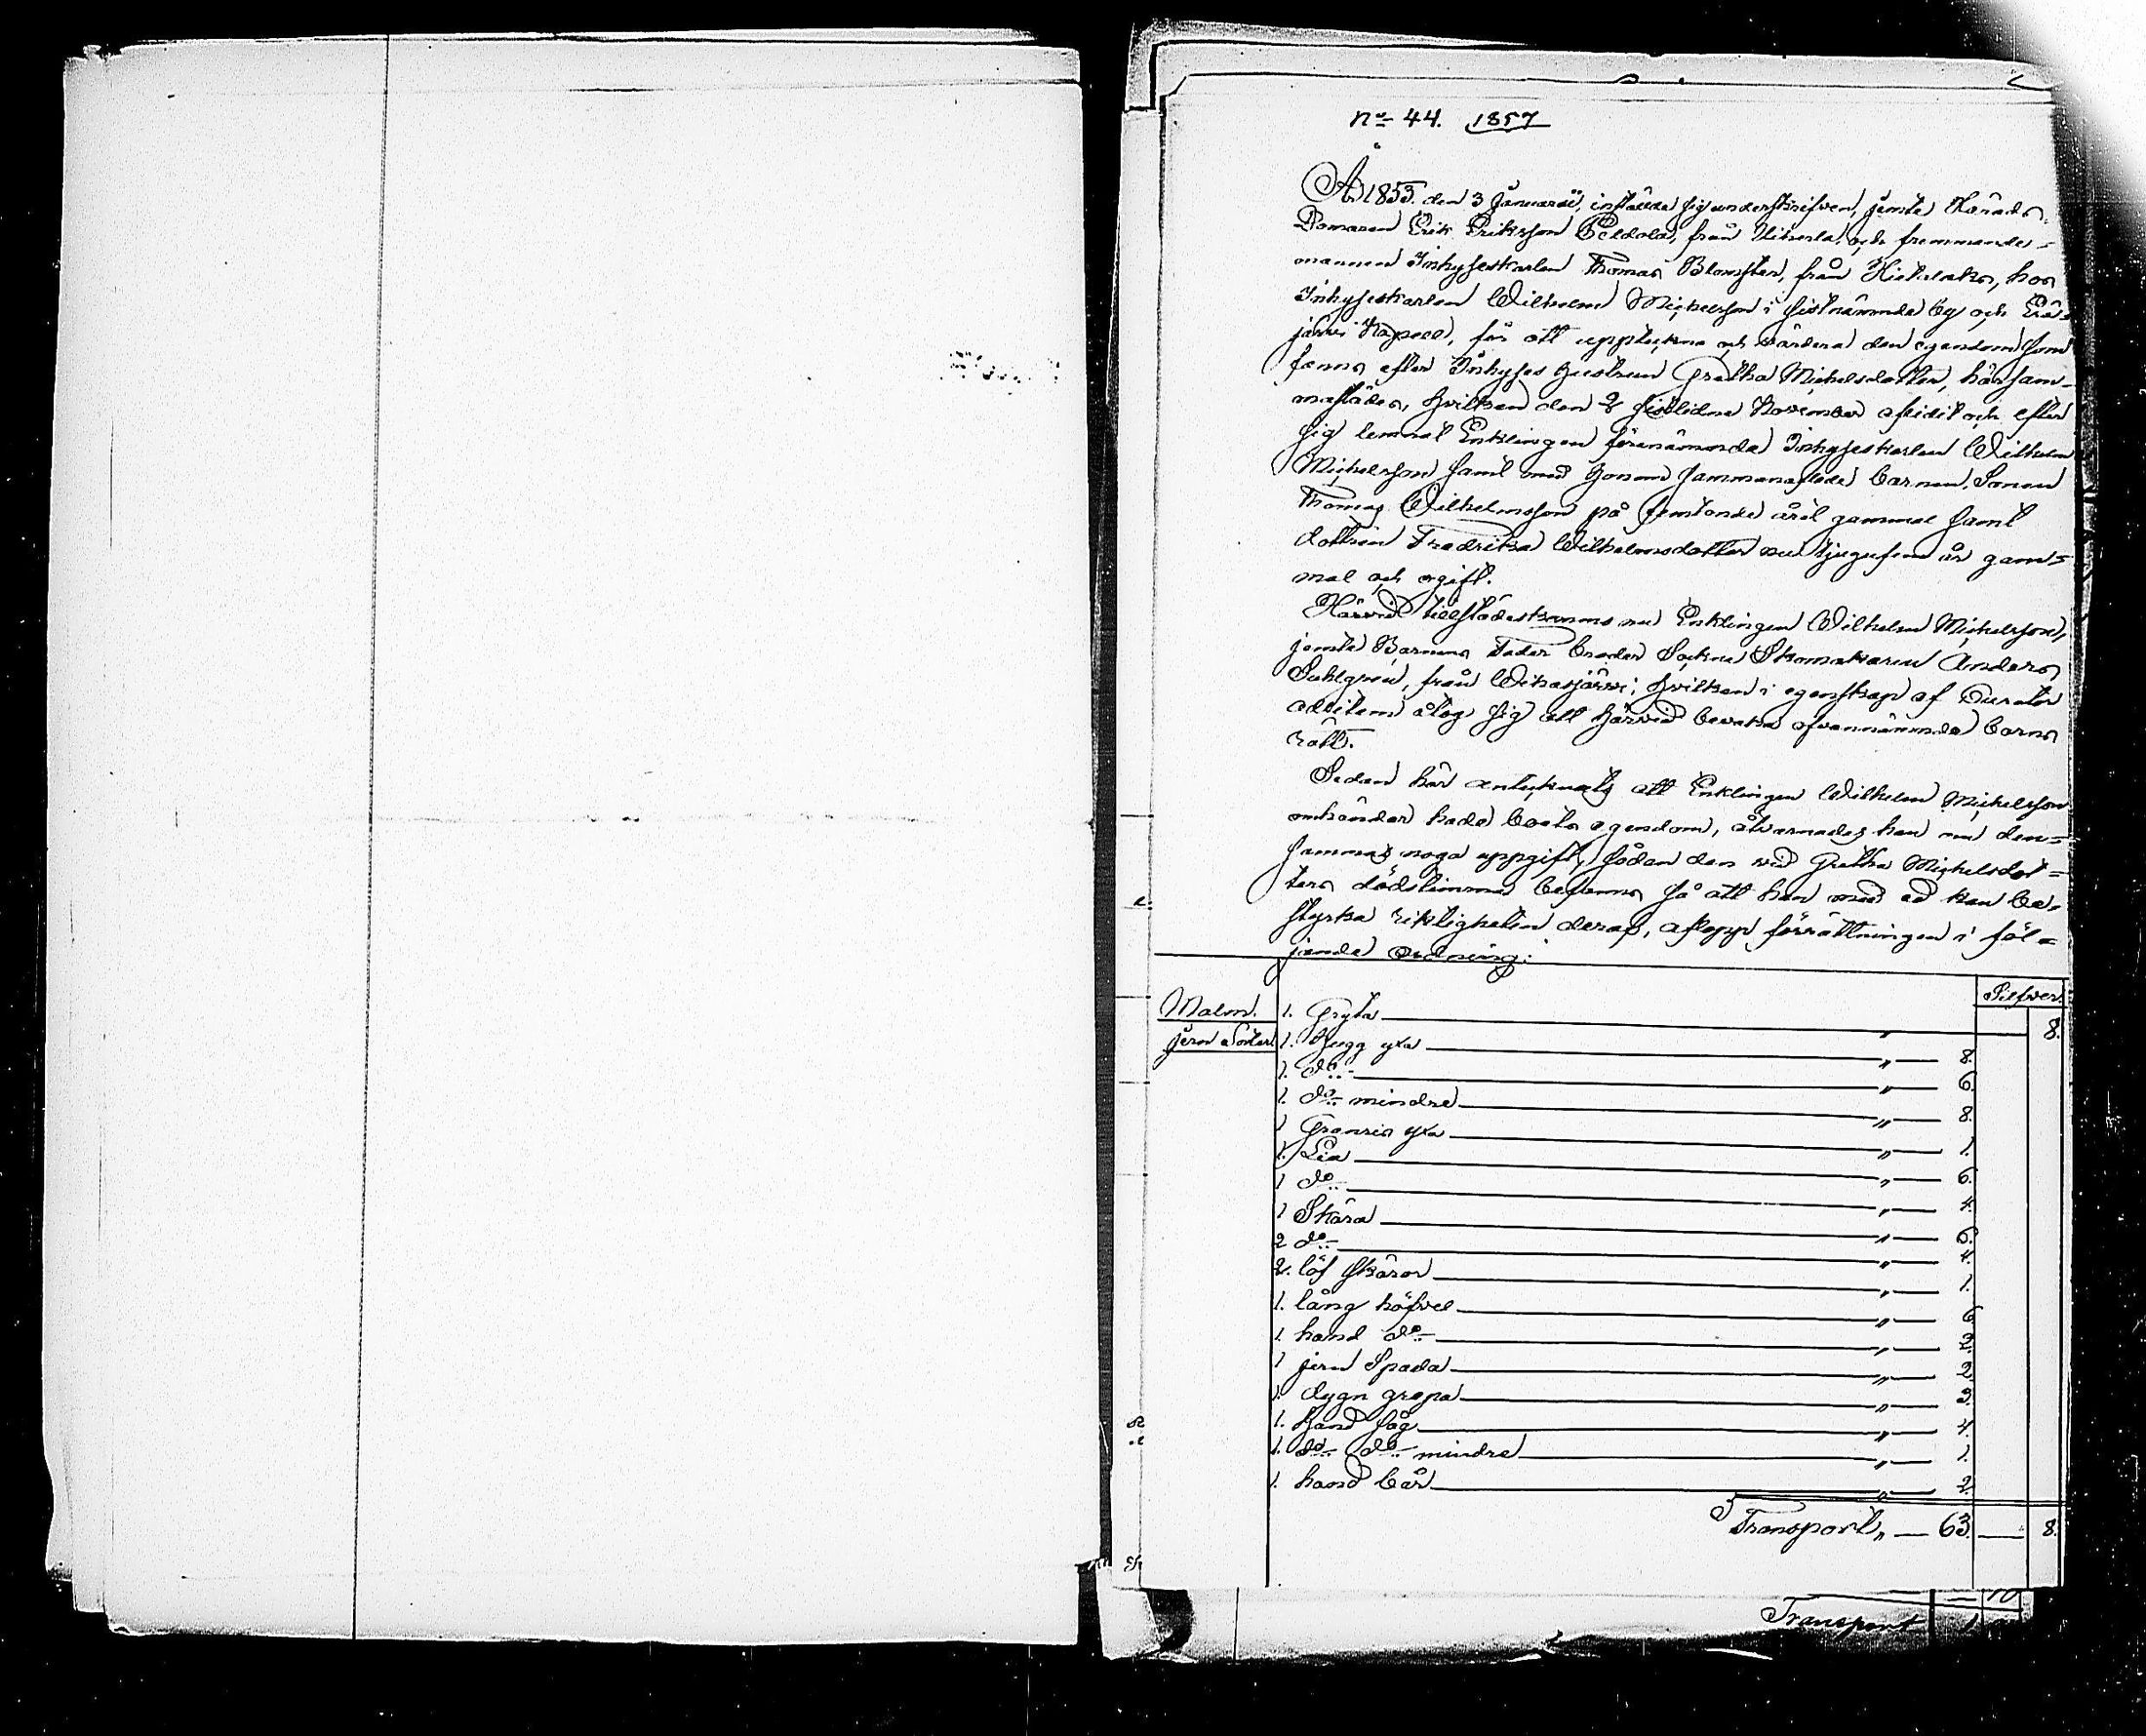 No 44. 1857
År 1853. den 3 Januarii, instälde sig underskrifven, jemte Härads
Domaren Erik Eriksson Peldola, från och fremmande-
mannen Inhysestkarlen Thomas Blomster, från Hietalaks, hos
Inhysestkarlen Wilhelm Michelsson i sistnämnde by och Erä-
järvi Kapell, för att uppteckna och värdera den egendom som
fanns efter Inhyses hustrun Gretha Michelsdotter, härsam-
mastädes, hvilken den 8 sistlidne November aflidit och efter
sig lemnat Enklingen förenämnde Inhysestkarlen Wilhelm
Michelsson samt med honom sammanaflade barnen, Sonen
Thomas Wilhelmsson på femtonde året gammal samt
dottren Fredrika Wilhelmsdotter nu tjugufem år gam-
mal och ogift.
Härvid tillstädeskommo nu Enklingen Wilhelm Michelsson,
jemte Barnens Fader broder Sockne Skomakaren Anders
Sahlgren, från Wihasjärvi; hvilken i egenskap af Curator
ad litem åtog sig att härvid bevaka ofvannämnde barns
rätt.
Sedan här antecknats att Enklingen Wilhelm Michelsson
omhänder hade boets egendom, åtvarnades han om den-
sammas noga uppgift, sådan den vid Gretha Michelsdot-
ters dödstimma befanns så att han med ed kan be-
styrka riktigheten deraf, aflopp förrättningen i föl-
jande ordning:
Silfver.
Malm. 1. Gryta " 8.
jern 1. Hugg yxa " 8.
1. do " 6.
1. do mindre " 8.
1 Granris yxa " 1.
1. Lia " 6.
1 do " 4.
1 Skära " 6.
2 do " 4.
2. löf skäror " 1.
1. lång höfvel " 6
1 hand do " 2.
1 jern Spada " 2
1. dygn grepa " 3.
1. Hand såg " 4.
1. do do mindre " 1.
1. hand bår " 2.
Transport " 63. 8.
10
Transport 1